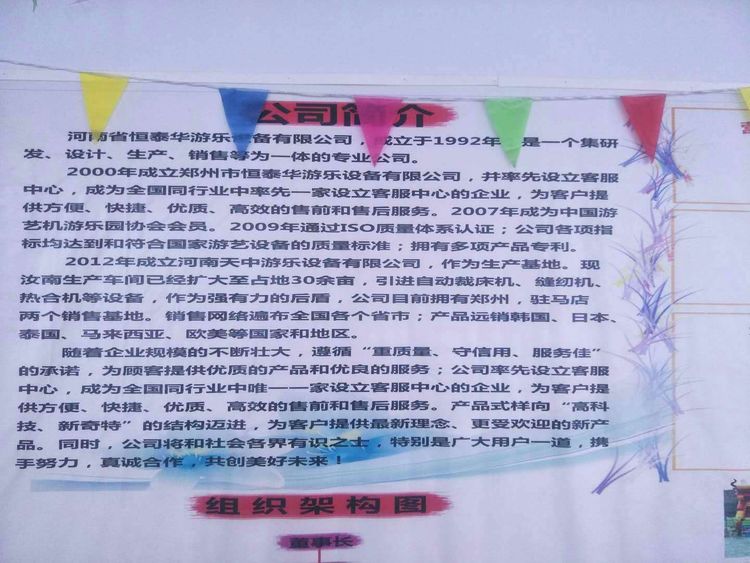 公司简介
河南省恒泰华游乐设备有限公司，成立于1992年 是一个集研
发、设计、生产、销售等为一体的专业公司。
2000年成立郑州市恒泰华游乐设备有限公司，并率先设立客服
中心，成为全国同行业中率先一家设立客服中心的企业，为客户提
供方便、快捷、优质、高效的售前和售后服务。2007年成为中国游
艺机游乐园协会会员。2009年通过ISO质量体系认证；公司各项指
标均达到和符合国家游艺设备的质量标准；拥有多项产品专利。
2012年成立河南天中游乐设备有限公司，作为生产基地。现
汝南生产车间已经扩大至占地30余亩，引进自动裁床机、缝纫机、
热合机等设备，作为强有力的后盾，公司目前拥有郑州，驻马店
两个销售基地。销售网络遍布全国各个省市；产品远销韩国、日本、
泰国、马来西亚、欧美等国家和地区。
随着企业规模的不断壮大，遵循“重质量、守信用、服务佳”
的承诺，为顾客提供优质的产品和优良的服务；公司率先设立客服
中心，成为全国同行业中唯一一家设立客服中心的企业，为客户提
供方便、快捷、优质、高效的售前和售后服务。产品式样向“高科
技、新奇特”的结构迈进，为客户提供最新理念、更受欢迎的新产
品。同时，公司将和社会各界有识之士，特别是广大用户一道，携
手努力，真诚合作，共创美好未来！
组织架构图
董事长